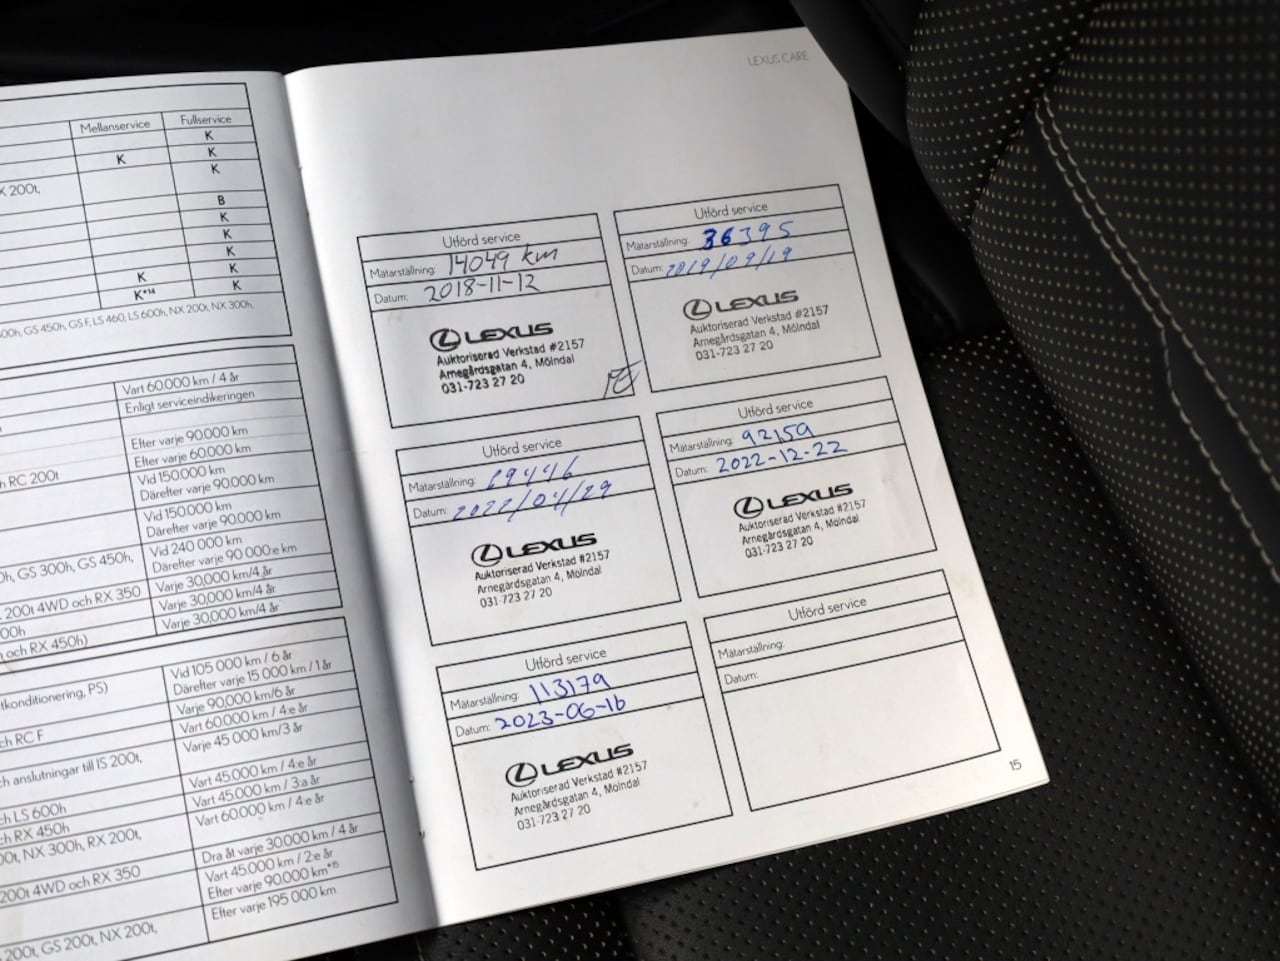 Mellanservice Fullservice
K
K K
X 200t, K
B
K
K
K
K K
K*14 K
00h, GS 450h, GS F, LS 460, LS 600h, NX 200t, NX 300h,
Vart 60.000 km / 4 år
Enligt serviceindikeringen
Efter varje 90.000 km
h RC 200t Efter varje 60.000 km
Vid 150.000 km
Därefter varje 90.000 km
Vid 150.000 km
Därefter varje 90.000 km
0h, GS 300h, GS 450h, Vid 240 000 km
Därefter varje 90 000:e km
200t 4WD och RX 350 Varje 30,000 km/4 år
00h Varje 30,000 km/4 år
och RX 450h) Varje 30,000 km/4 år
tkonditionering, PS) Vid 105 000 km / 6 år
Därefter varje 15 000 km / 1 år
Varje 90,000 km/6 år
ch RC F Vart 60.000 km / 4:e år
ch anslutningar till IS 200t, Varje 45 000 km/3 år
Vart 45.000 km / 4:e år
ch LS 600h Vart 45.000 km / 3:a år
ch RX 450h Vart 60.000 km / 4:e år
00t, NX 300h, RX 200t,
200t 4WD och RX 350 Dra åt varje 30.000 km / 4 år
Vart 45.000 km / 2:e år
Efter varje 90.000 km*15
Efter varje 195 000 km
200t, GS 200t, NX 200t,
LEXUS CARE
Utförd service
Mätarställning: 14049 km
Datum: 2018-11-12
LEXUS
Auktoriserad Verkstad #2157
Arnegårdsgatan 4, Mölndal
031-723 27 20
Utförd service
Mätarställning: 36395
Datum: 2019/09/19
LEXUS
Auktoriserad Verkstad #2157
Arnegårdsgatan 4, Mölndal
031-723 27 20
Utförd service
Mätarställning: 69446
Datum: 2022/04/29
LEXUS
Auktoriserad Verkstad #2157
Arnegårdsgatan 4, Mölndal
031-723 27 20
Utförd service
Mätarställning: 92159
Datum: 2022-12-22
LEXUS
Auktoriserad Verkstad #2157
Arnegårdsgatan 4, Mölndal
031-723 27 20
Utförd service
Mätarställning: 113179
Datum: 2023-06-16
LEXUS
Auktoriserad Verkstad #2157
Arnegårdsgatan 4, Mölndal
031-723 27 20
Utförd service
Mätarställning:
Datum:
15